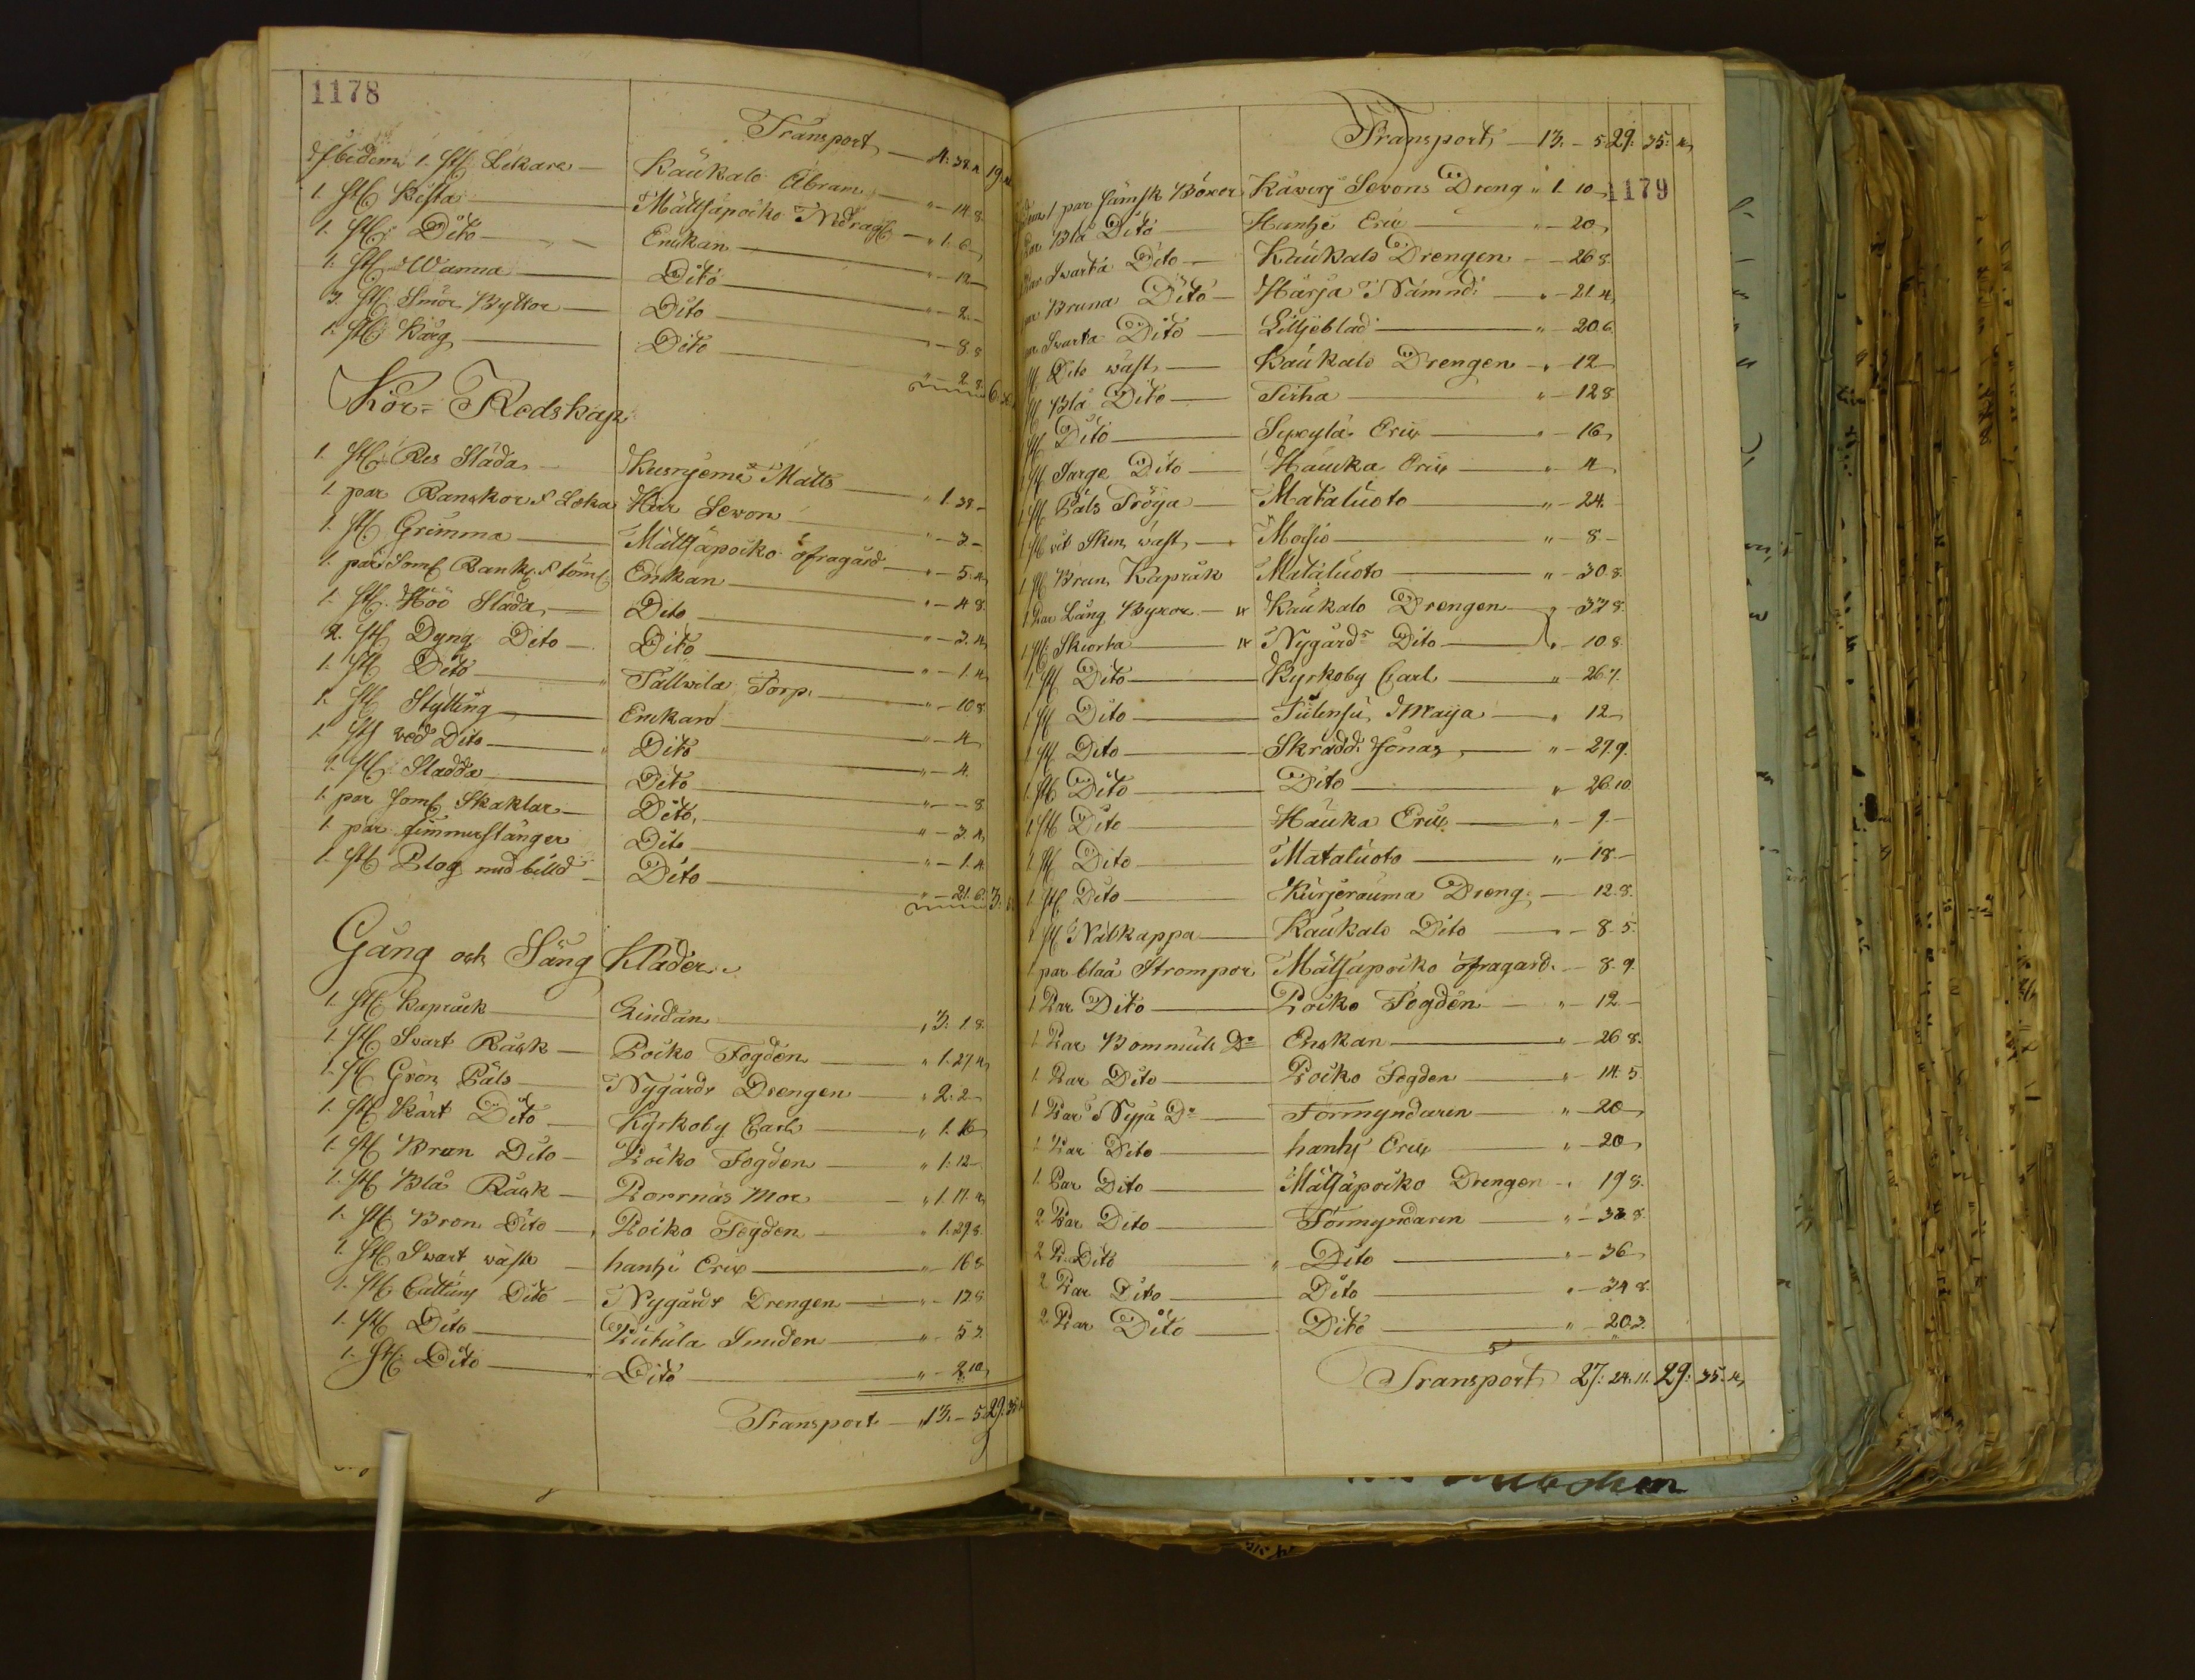 1178
Transport — 4. 38. 4. 19.
Ibidem 1. st. Lekare — Kaukalo Abram — " — 14. 8.
1. st. Kista — Mältsäpoiko Nedrag. — " 1. 6 —
1. st. Dito — Enckan — " — 12 —
1. st. Wanna — Dito — " — 2. —
3. st. Smör Byttor — Dito — " — 8. 8
1. st. Korg — Dito — " — 2. 8. 6.
Kör = Redskap
1. st. Res Släda — Kusnjemi Matts — " 1. 38 —
1. par Banckor & Loka Här Sewon — " — 3. —
1. st. Grimma — Mältsäpoiko öfragård — " — 5. 4
1. par Tom & töm Enckan — " — 4 8.
1. st. Höö Släda — Dito — " — 3. 4
2. st. Dyng Dito — Dito — " — 1. 4
1. st. Dito — Tällwila Torp. — " — 10 8
1. st. Stytting — Enckan — " — 4
1. st. ved Dito — Dito — " — 4.
1. st. Sladda — Dito — " — — 8
1. par Jomf Skaklar — Dito — " — 3. 4
1. par Timmerstänger Dito — " — 1. 4.
1. st. Plog med billd — Dito — " — 21. 6. 3.
Gång och Säng Kläder
1. st. Kaprack Lindan " 3. 1. 8.
1. st. Svart Råck — Poiko Fogden — " 1. 27. 4
1. st. Grön Päls — Nygårds Drengen — " 2. 2 —
1. st. Kårt Dito — Kyrkoby Carl — " 1. 16
1. st. Brun Dito — Poiko Fogden — " 1. 12 —
1. st. Blå Råck — Porrnäs Mor — " 1. 17. 4
1. st. Brun Dito — Poiko Fogden — " 1. 29 8.
1. st. Swart wäste — hanhi Eric — " — 16 8
1. st. Cattuns Dito — Nygårds Drengen — " — 12 8
1. st. Dito — Rutula Smeden — " — 5 3.
1. st. Dito — Dito — " — 2. 10
Transport — " 13. — 5. 29. 35.
Transport — 13. — 5. 29. 35. 4
1179
1 par sämsk Böxer Käwerj Sewons Dreng " 1. 10
Par Blå Dito — Hanhi Eric — " — 20
Par Swarta Dito — Kaukalo Drengen — — 26 8.
par Bruna Dito — Härja Nämnd. — " — 21. 4
par Swarta Dito — Liljeblad — " — 20. 6.
st. Dito wäst — Kaukalo Drengen — " — 12
st. Blå Dito — Tirha — " — 12 8
st. Dito — Eric — " — 16
1 st. Sarge Dito — Hauka Eric — " — 4
1 st. Päls Tröya — Mataluoto — " — 24.
1 st. vit Skin wäst — Moisio — " — 8. —
1 st. Brun Kapråk Mataluoto — " — 30. 8.
1 Par Lång Byxor — Kaukalo Drengen — " — 32 8.
1 st. Skiorta — Nygårds Dito — " — 10 8.
1. st. Dito — Kyrkoby Carl — " — 26 7.
1 st. Dito — Maija — " 12
1 st. Dito — Skrädd. Jonas — " — 27 9.
1. st. Dito — Dito — " — 26 10
1 st. Dito — Hauka Eric — " — 9. —
1 st. Dito — Mataluoto — " — 18 —
1. st. Dito — Kurjerauma Dreng — — 12. 8.
1 st. Natkappa — Kaukalo Dito — — 8. 5.
1 par blaa Strompor Mältsäpoiko öfragard. — 8. 9.
1 Par Dito — Poiko Fogden — " — 12 —
1 Par Bommuls Do Enckan — " — 26 8.
1. Par Dito — Poiko Fogden — " — 14. 5.
1 Par Nyja Do — Förmyndaren — " — 20
1 Par Dito — hanhi Eric — " — 20
1. Par Dito — Mältsäpoiko Drengen — " 19 8.
2. Par Dito — Förmyndaren — " — 38. 8.
2 P. Dito — Dito — " — 36
2 Par Dito — Dito — " — 34 8.
2 Par Dito — Dito — " — 20. 3.
Transport 27. 24. 11. 29. 35. 4